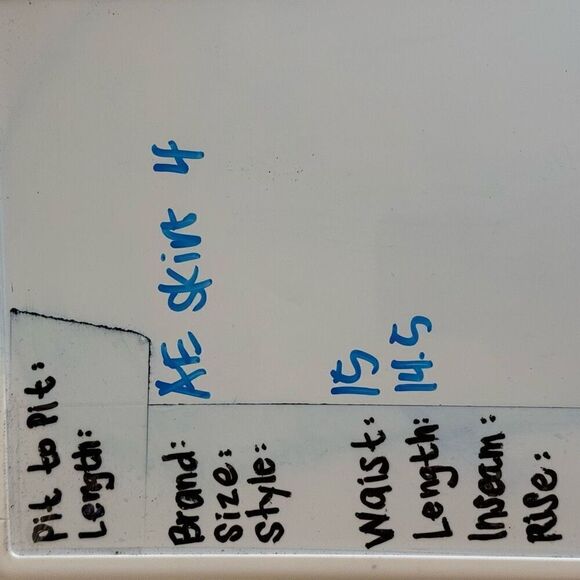 Pit to Pit:
Length:
Brand: AE skirt 4
Size:
Style:
Waist: 15
Length: 14.5
Inseam:
Rise: